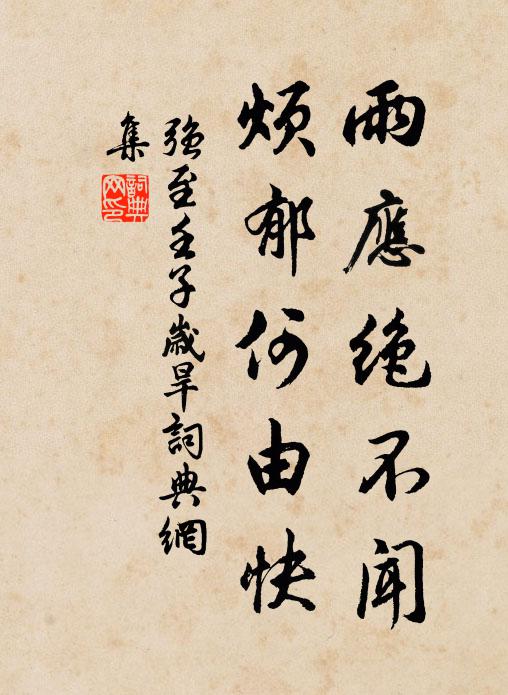 雨應絶不聞
煩郁何由快
強至壬子歲旱詞典網
集
詞典
网印